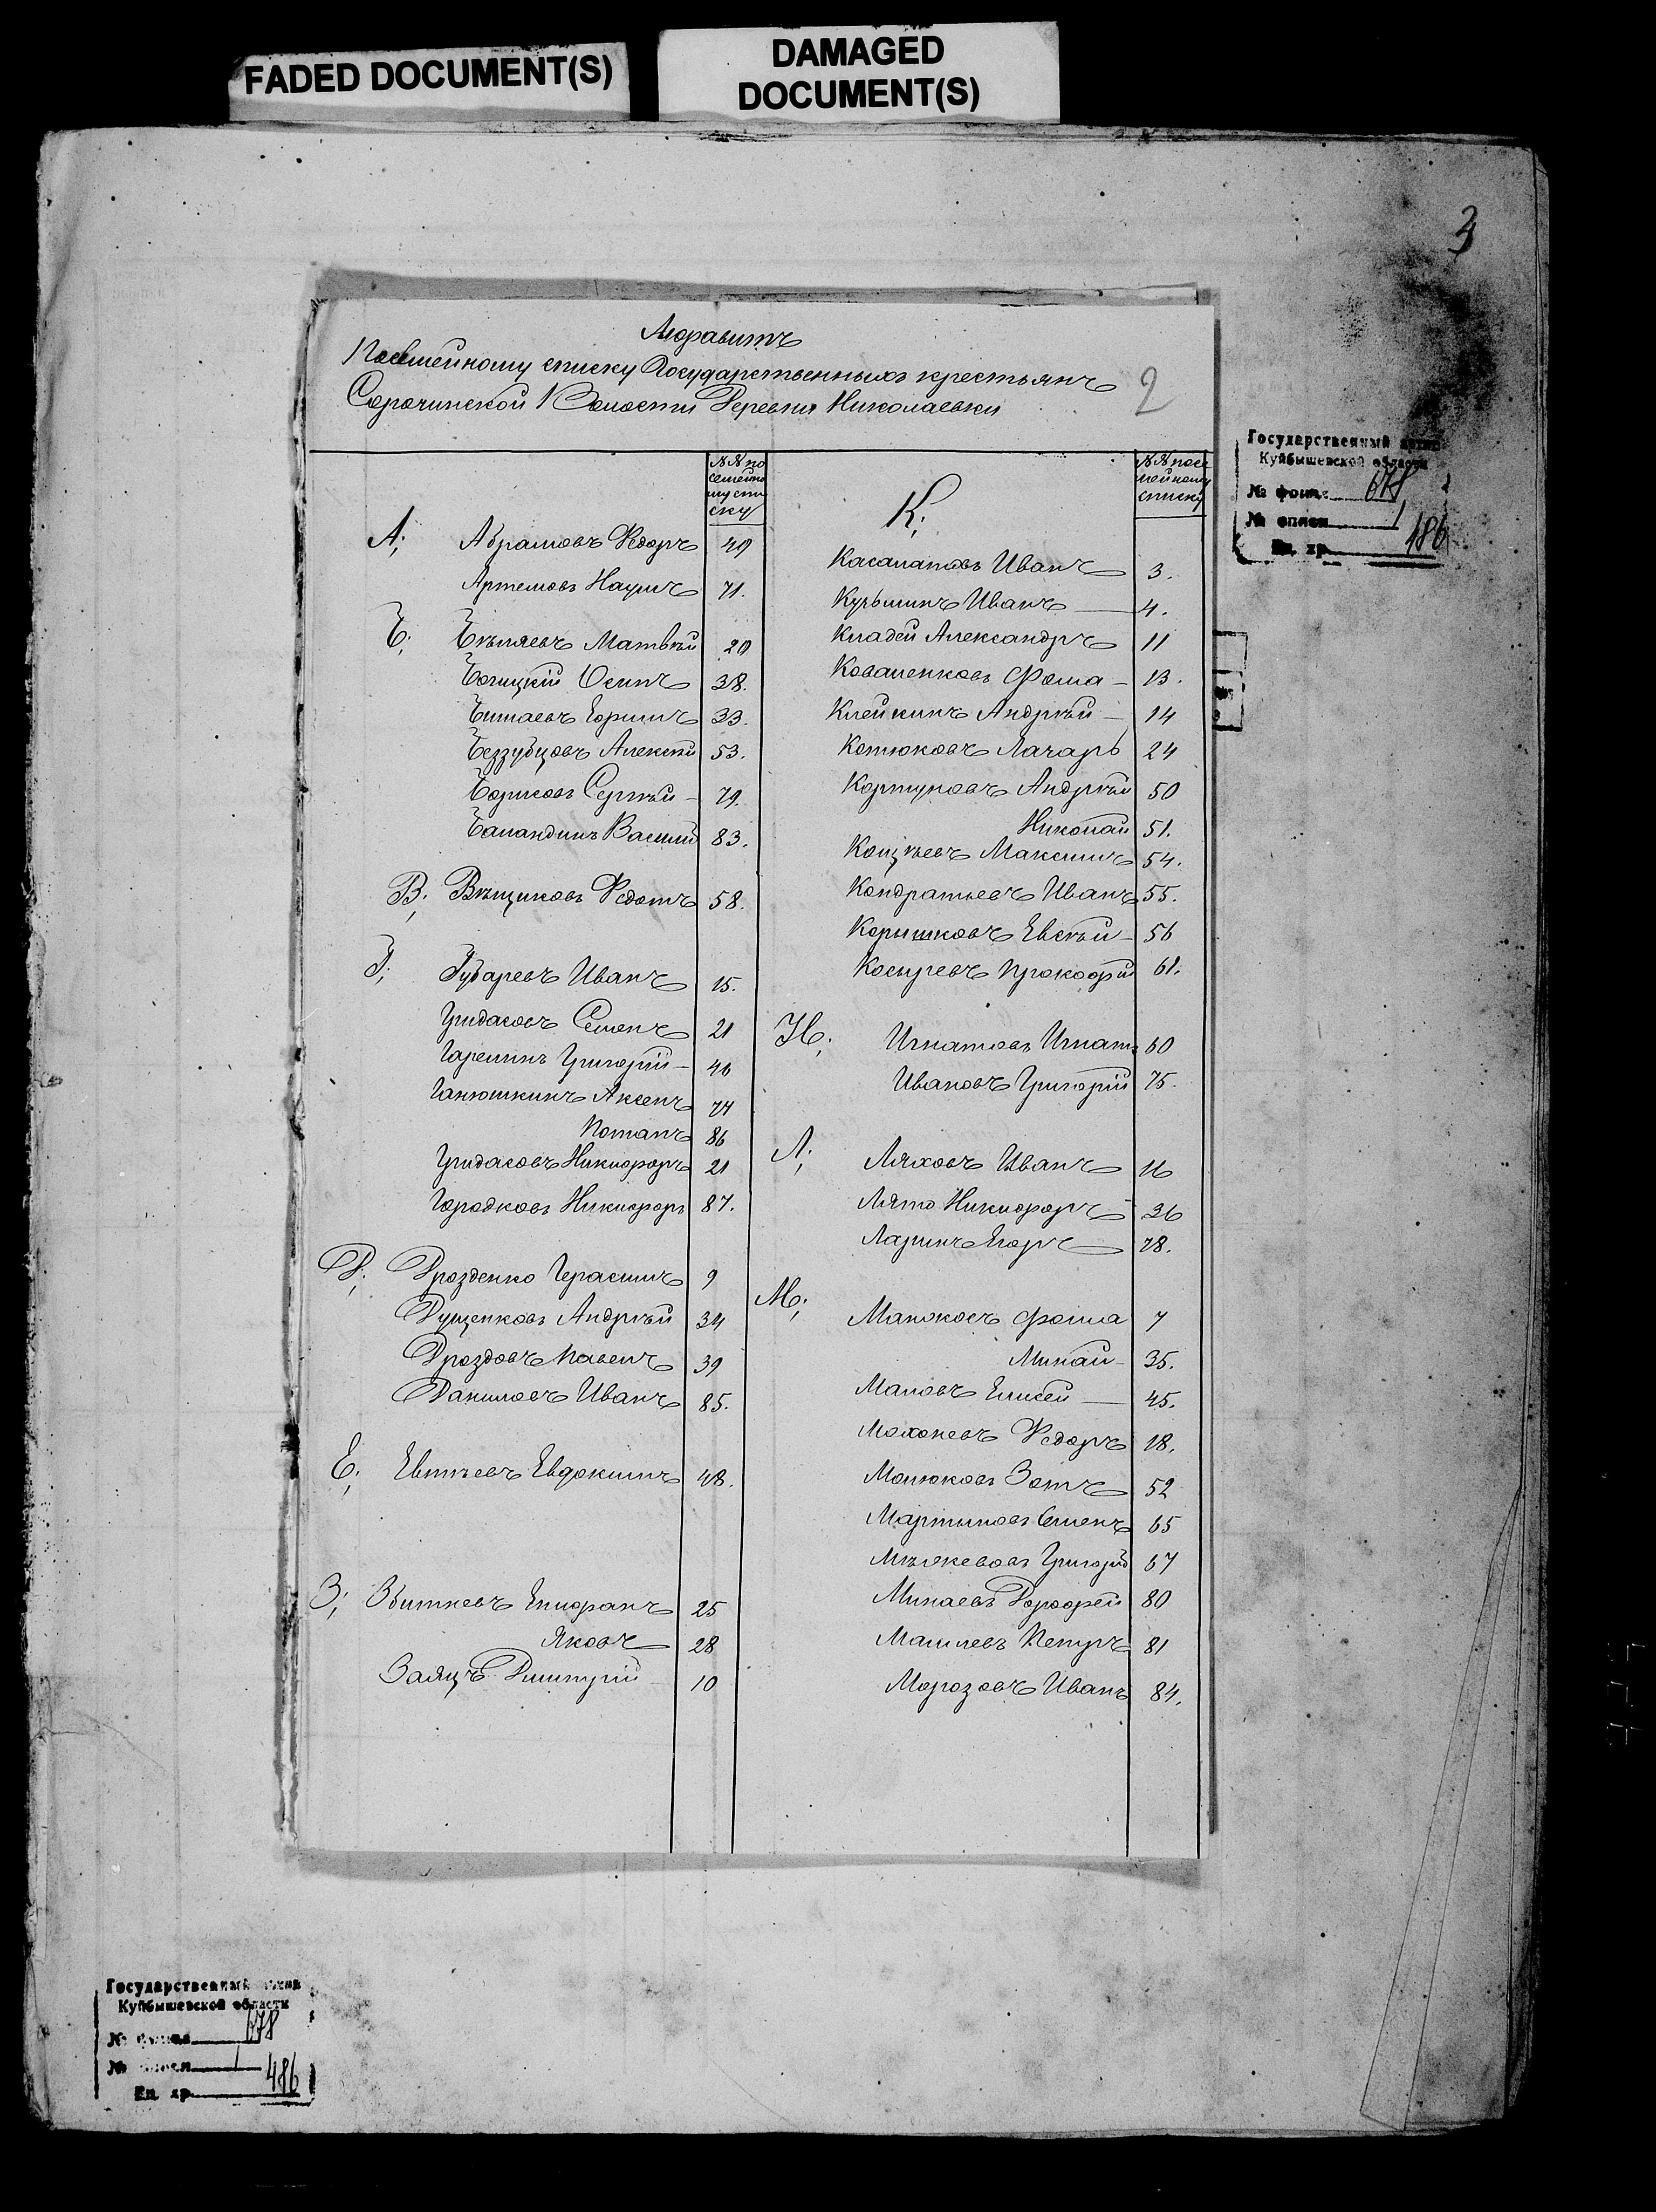 FADED DOCUMENT(S)
DAMAGED
DOCUMENT(S)
3
Алфавитъ
Посемейному списку Государственныхъ крестьянъ
Сорочинской Волости Деревни Николаевки
2
Государственный архив
Куйбышевской области
№ фонда 678
№ описи 1
Ед. хр. 486
№№ по
семейно
му спи
ску
А;
Абрамовъ Ѳедоръ 49
Артемовъ Наумъ 71.
Б;
Бѣляевъ Матвѣй 20
Богицкій Осипъ 38.
Битаевъ Ефимъ 33.
Беззубцовъ Алексѣй 53.
Борисовъ Сергѣй 79.
Баландинъ Василій 83.
В;
Вѣщиковъ Ѳедотъ 58.
Г;
Губаревъ Иванъ 15.
Гридасовъ Семенъ 21
Гаремкинъ Григорій 46
Ганюшкинъ Аксенъ 74
Потапъ 86
Гридасовъ Никифоръ 21
Городковъ Никифоръ 87.
Д;
Дрозденко Герасимъ 9
Дущенковъ Андрѣй 34
Дроздовъ Павелъ 39
Даниловъ Иванъ 85.
Е;
Евтѣевъ Евдокимъ 48.
З;
Збитневъ Епифанъ 25
Яковъ 28
Заяцъ Дмитрій 10
№№ посе
мейному
списку
К;
Касалаповъ Иванъ 3.
Кузьминъ Иванъ 4.
Кладей Александръ 11
Коваленковъ Фома 13.
Клейкинъ Андрѣй 14
Котюковъ Лазарь 24
Кортуновъ Андрѣй 50
Николай 51.
Кощѣевъ Максимъ 54.
Кондратьевъ Иванъ 55.
Корышковъ Евсѣй 56
Косыревъ Прокофій 61.
И;
Игнатовъ Игнатъ 60
Ивановъ Григорій 75.
Л;
Ляховъ Иванъ 16
Лято Никифоръ 36
Ларинъ Егоръ 78.
М;
Манжосъ Фома 7
Минай 35.
Маловъ Елисей 45.
Мохоневъ Ѳедоръ 18.
Манюковъ Зотъ 52
Мартыновъ Семенъ 65
Григорій 67
Минаевъ Дорофей 80
Петръ 81
Морозовъ Иванъ 84.
Государственный архив
Куйбышевской области
№ фонда 678
№ описи 1
Ед. хр. 486